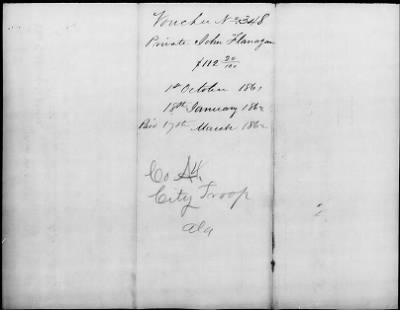 Voucher No 348
Private John Flanagan
$112 20/100
1st October 1861
18th January 1862
Pd 17th March 1862
Co
City Troop
Ala